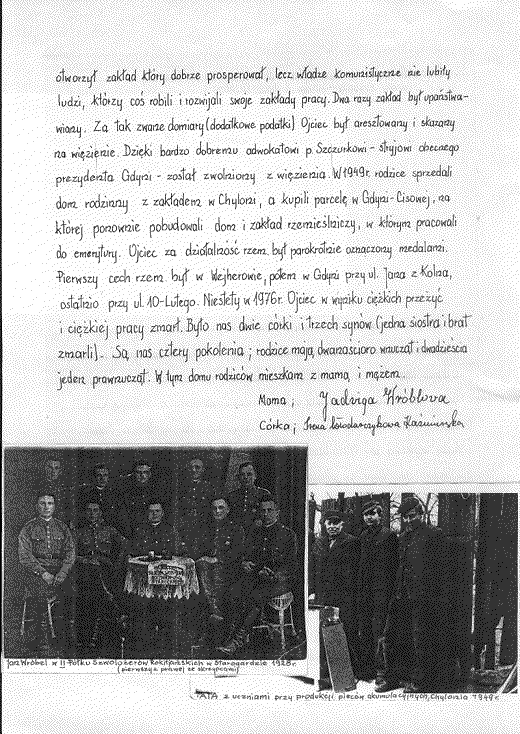 otworzył zakład który dobrze prosperował, lecz władze komunistyczne nie lubiły
ludzi, którzy coś robili i rozwijali swoje zakłady pracy. Dwa razy zakład był upaństwa-
wiany. Za tak zwane domiary (dodatkowe podatki) Ojciec był aresztowany i skazany
na więzienie. Dzięki bardzo dobremu adwokatowi p. Szczurkowi - stryjowi obecnego
prezydenta Gdyni - został zwolniony z więzienia. W 1949r. rodzice sprzedali
dom rodzinny z zakładem w Chyloni, a kupili parcelę w Gdyni-Cisowej, na
której ponownie pobudowali dom i zakład rzemieślniczy, w którym pracowali
do emerytury. Ojciec za działalność rzem. był parokrotnie oznaczony medalami.
Pierwszy cech rzem. był w Wejherowie, potem w Gdyni przy ul. Jana z Kolna,
ostatnio przy ul. 10-Lutego. Niestety w 1976r. Ojciec w wyniku ciężkich przeżyć
i ciężkiej pracy zmarł. Było nas dwie córki i trzech synów (jedna siostra i brat
zmarli). Są nas cztery pokolenia; rodzice mają dwanaścioro wnucząt i dwadzieścia
jeden prawnucząt. W tym domu rodziców mieszkam z mamą i mężem.
Mama; Jadwiga Wróblowa
Córka; Irena Włodarczykowa Kaźmierska
Jan Wróbel w II Pułku Szwoleżerów Rokitniańskich w Starogardzie 1928r.
(pierwszy z prawej ze skrzypcami)
TATA z uczniami przy produkcji pieców akumulacyjnych, Chylonia 1949r.